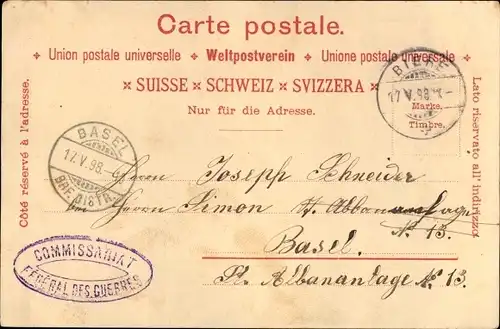 Carte postale.
Union postale universelle Weltpostverein Unione postale universale
SUISSE × SCHWEIZ × SVIZZERA ×
Nur für die Adresse.
Côté réservé à l'adresse.
Lato riservato all' indirizzo.
Marke.
Timbre.
BIÈRE
17.V.98
BASEL
17.V.98.
BRF. DISTR.
Herrn Joseph Schneider
bei Herrn Simon St Albananlage
Nº 13.
Basel.
St. Albananlage Nº 13.
COMMISSARIAT
FÉDÉRAL DES GUERRES